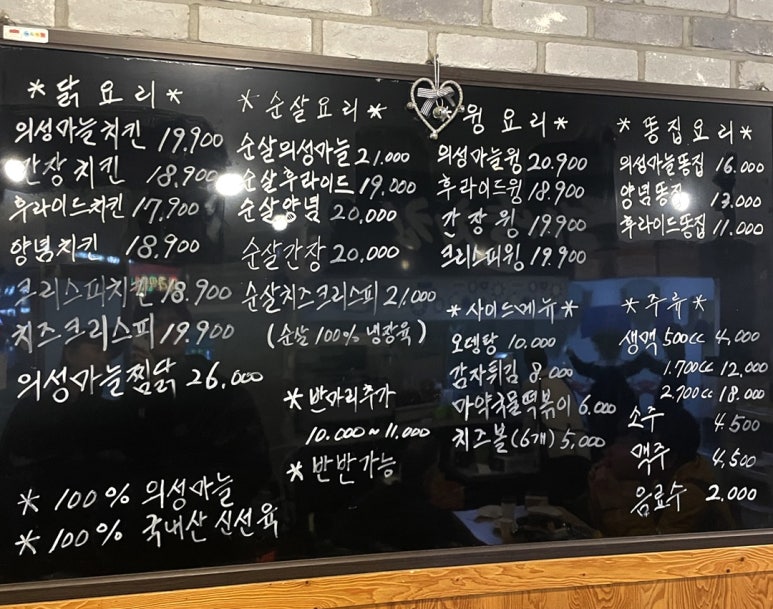 *닭요리*
의성마늘치킨 19.900
간장치킨 18.900
후라이드치킨 17.900
양념치킨 18.900
크리스피치킨 18.900
치즈크리스피 19.900
의성마늘찜닭 26.000
* 100% 의성마늘
* 100% 국내산 신선육
*순살요리*
순살의성마늘 21.000
순살후라이드 19.000
순살양념 20.000
순살간장 20.000
순살치즈크리스피 21.000
(순살 100% 냉장육)
* 반마리추가
10.000~11.000
* 반반가능
윙요리*
의성마늘윙 20.900
후라이드윙 18.900
간장윙 19.900
크리스피윙 19.900
*사이드메뉴*
오뎅탕 10.000
감자튀김 8.000
마약국물떡볶이 6.000
치즈볼(6개) 5,000
*똥집요리*
의성마늘똥집 16.000
양념똥집 13.000
후라이드똥집 11.000
*주류*
생맥 500cc 4,000
1.700cc 12,000
2.700cc 18.000
소주 4.500
맥주 4,500
음료수 2.000